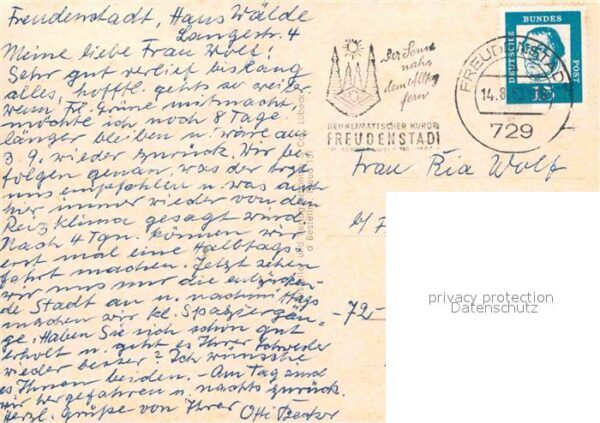 Freudenstadt, Hans Wälde
Langestr. 4
Meine liebe Frau Wolf!
Sehr gut verlief bislang
alles, hofftl. gehts so weiter
wenn Frl. Grüne mitmacht,
möchte ich noch 8 Tage
länger bleiben u. wäre am
3. 9. wieder zurück. Wir be-
folgen genau, was der Arzt
uns empfohlen u. was auch
hier immer wieder von dem
Reizklima gesagt wird
Nach 4 Tgn. können wir
erst mal eine Halbtags-
fahrt machen. Jetzt sehen
wir uns nur die entzücken-
de Stadt an u. nachmittags
machen wir kl. Spatziergän-
ge. Haben Sie sich schon gut
erholt u. geht es Ihrer Schwester
wieder besser? Ich wünsche
es Ihnen beiden. - Am Tag sind
wir hergefahren u. nachts zurück.
Herzl. Grüße von Ihrer
Der Sonne
nah
dem Alltag
fern
HEILKLIMATISCHER KURORT
FREUDENSTADT
FREUDENSTADT
14.8.
729
DEUTSCHE
BUNDES
POST
15
Frau Ria Wolf
b/
-72-
privacy protection
Datenschutz